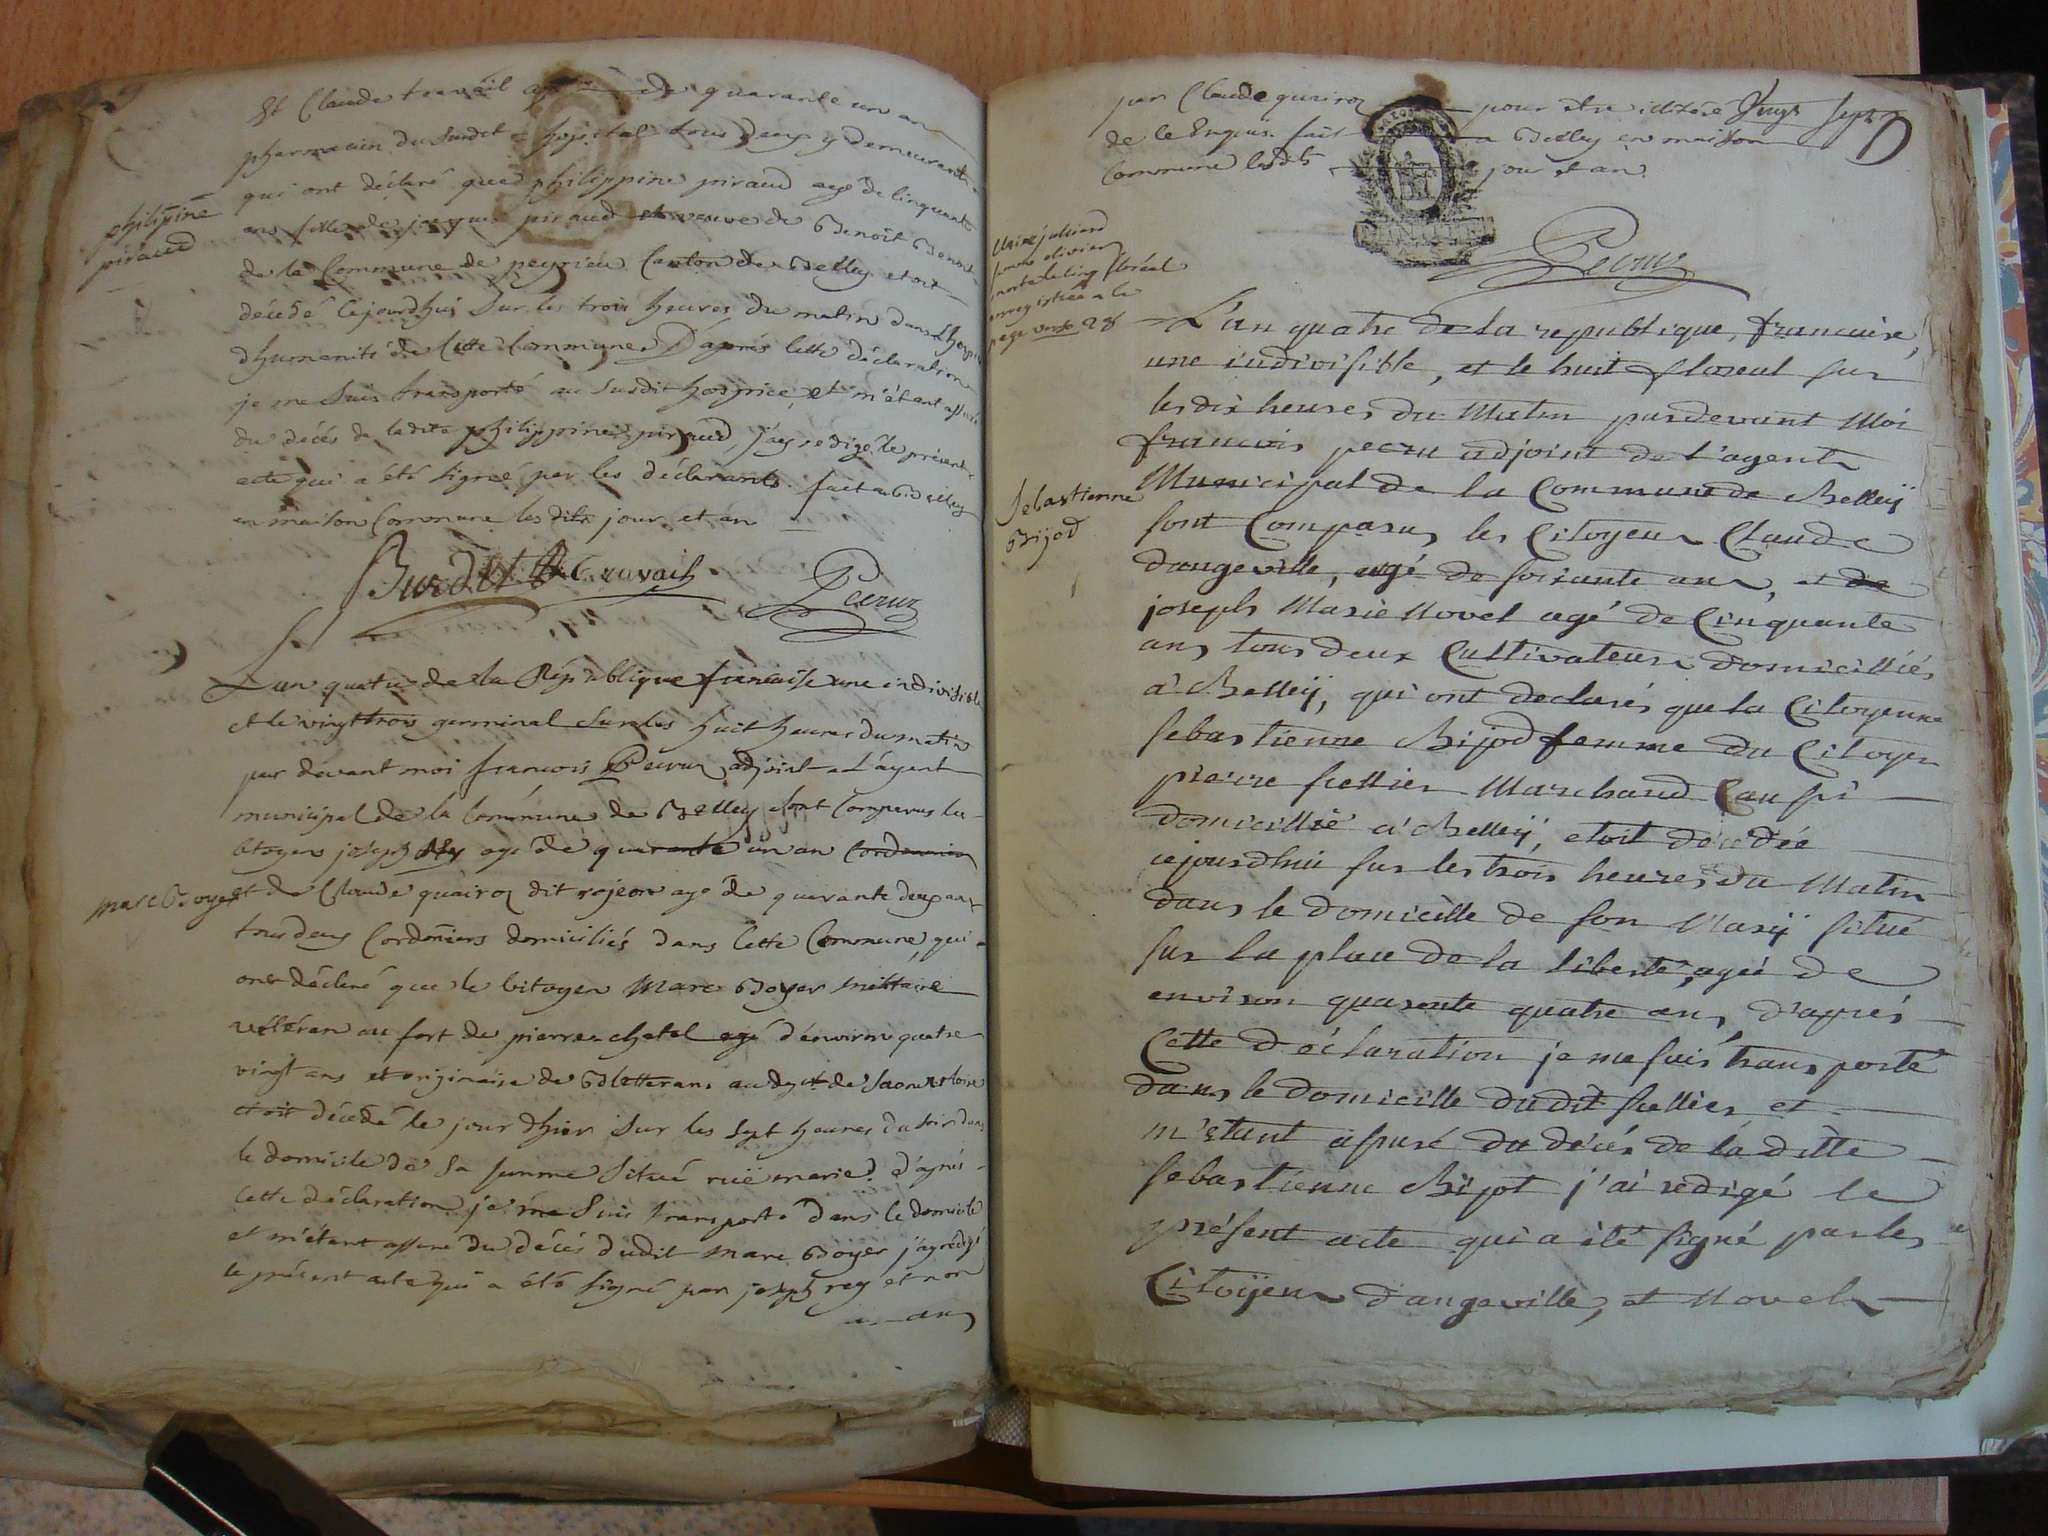 Et Claude travail agé de quarante un an
pharmacien du Susdit hopital tous deux y demeurant
qui ont déclaré que philippine piraud agé de cinquante
ans fille de jacques piraud et veuve de Benoit
philipine
piraud
de la Commune de peyrieu Canton de Belley etoit
décédé cejourdhui Sur les trois heures du matin dans
dhumanité de Cette Commune D'aprés Cette déclaration
je me Suis transporté au Susdit hospice, et m'étant assuré
du décés de ladite philippine piraud, j'ay redigé le présent
acte qui a été Signé par les déclarants. fait a Belley
en maison Commune les dits jour et an
Burdet travail Pecruz
L'an quatre de la République francaise une indivisible
et le vingt trois germinal Sur les huit heures du matin
par devant moi francois Pecruz adjoint a L'agent
municipal de la Commune de Belley Sont Comparus Le
Citoyen joseph Rey agé de quarante un an Cordonnier
marc Boyer
et de Claude quairoz dit rojeon agé de quarante deux ans
tous deux Cordoñiers domiciliés dans Cette Commune, qui
ont déclaré que le Citoyen Marc Boyer militaire
vetteran au fort de pierre chatel agé d'énviron quatre
vingt ans et originaire de Bletterans au dept de Saone et loire
etoit décédé le jour dhier Sur les Sept heures du Soir dans
le domicile de Sa femme Situé ruë marie. d'aprés
Cette déclaration je me Suis transporté dans le domicile
et m'étant assuré du décés dudit marc Boyer j'ay redigé
le présent acte qui a été Signé par joseph rey et non
par Claude quairoz pour être illitéré Vingt Sept
de le Enquis. fait a Belley en maison
Commune lesdts jour et an
Pecruz
Claire julliard
femme olivier
morte le cinq floréal
enregistrée a la
page verso 28
L'an quatre de la republique, francaise,
une indivisible, et le huit floreal sur
les dix heures du Matin pardevant Moi
francois pecru adjoint de l'agent
Municipal de la Commune de Belleÿ
sont Comparus les Citoyens Claude
Sebastienne
Bijod
dangeville, agé de soixante ans, et de
joseph Marie Novel agé de Cinquante
ans tous deux Cultivateurs domiciliés
à Belleÿ, qui ont declarés que la Citoyenne
sebastienne Bijod femme du Citoyen
pierre sellier Marchand
domicillié à Belleÿ, etoit décédée
cejourdhui sur les trois heures du Matin
dans le domicille de son Mary situé
sur la place de la liberté, agée de
environ quarante quatre ans, d'aprés
Cette déclaration je me suis transporté
dans le domicille dudit sellier et
m'etant assuré du décés de la ditte
sebastienne Bijot j'ai redigé le
présent acte qui a été signé par les
Citoÿens d'angeville, et Novel